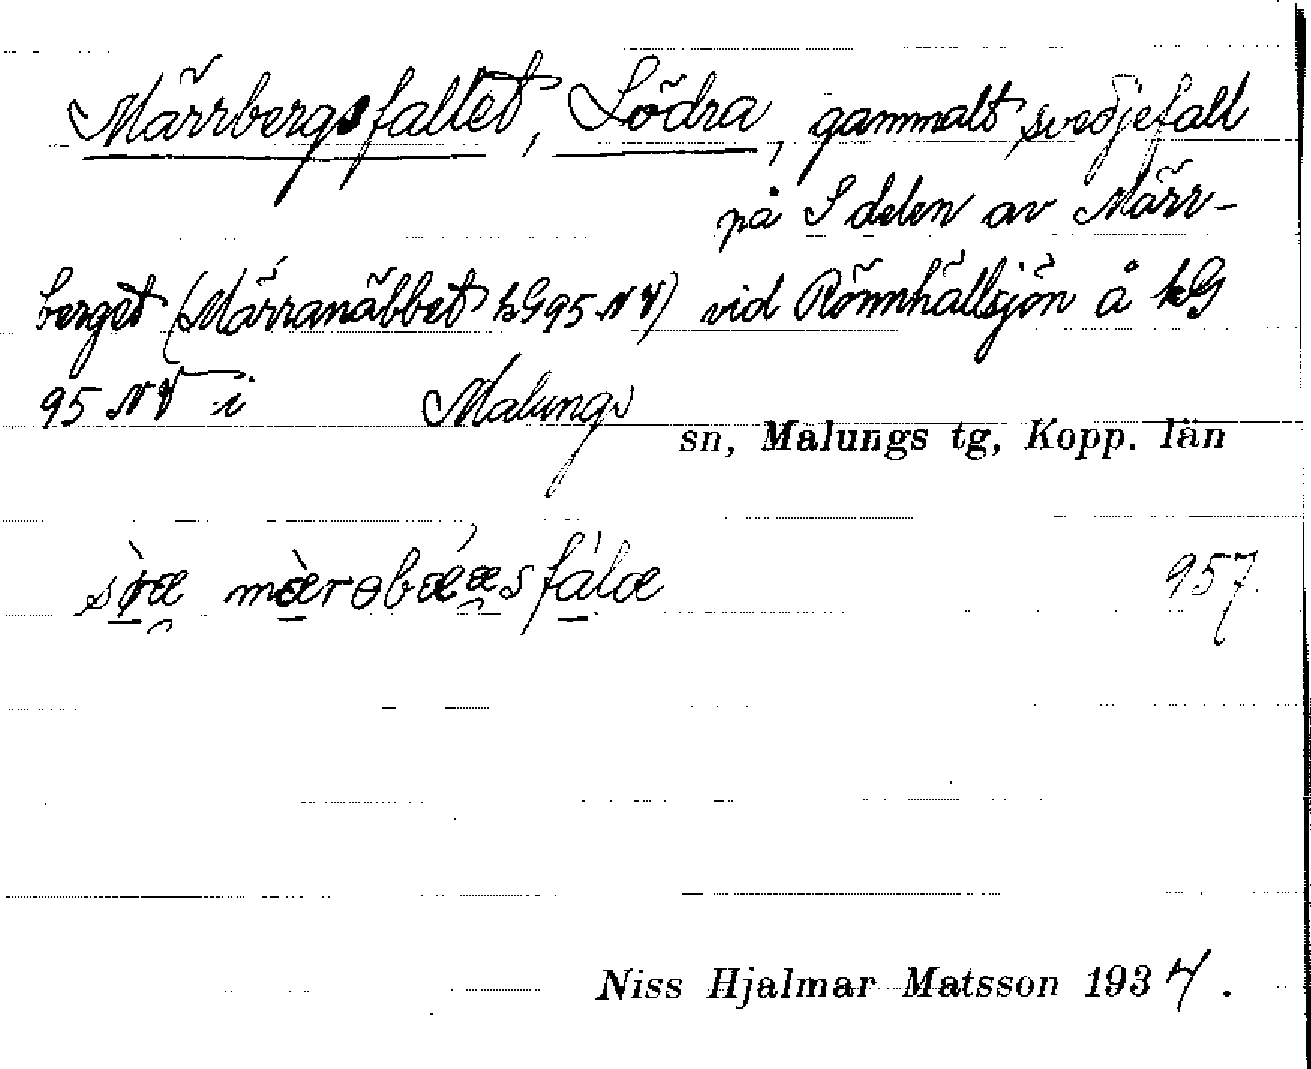 Märrbergsfallet, Södra, gammalt svedjefall
på S delen av Märr-
berget (Märranäbbet kG95NV) vid Rönnhällsjön å kG
95 NV i Malungs
sn, Malungs tg, Kopp. län
mærəbææsfalæ 957.
Niss Hjalmar Matsson 1937.